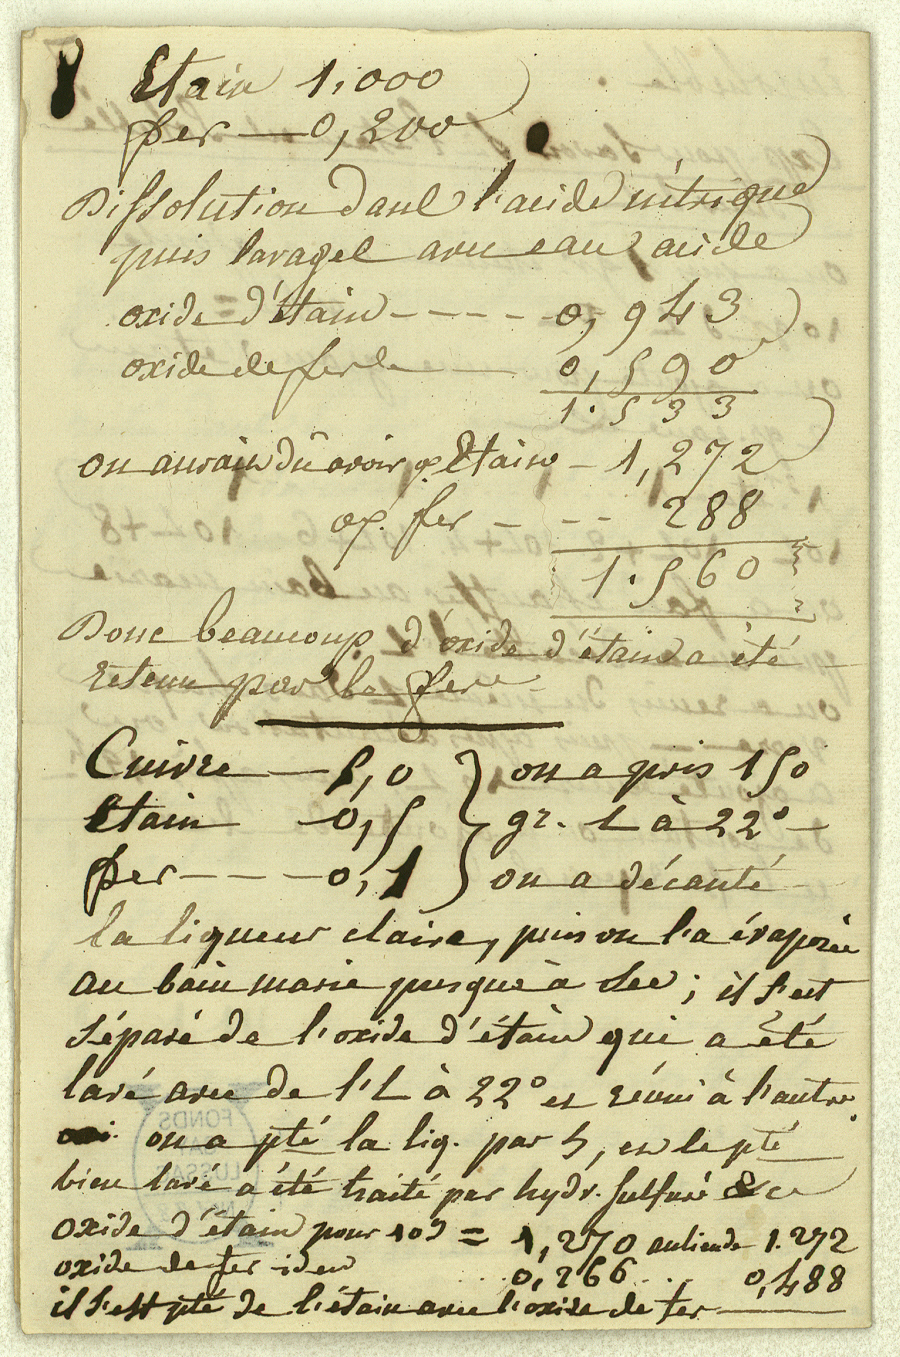 Etain 1.000
fer — 0,200
Dissolution dans l'acide nitrique
puis lavages avec eau acide
oxide d'étain - - - - - 0,943
oxide de fer — 0,590
1.533
on aurait dû avoir op Etain - 1,272
op. fer - - - 288
1.560
Donc beaucoup d'oxide d'étain a été
retenu par le fer
Cuivre — 5,0 } on a pris 150
Etain - 0,5 } gr. L à 22° -
fer - - - - 0,1 } on a décanté
la liqueur claire, puis on l'a évaporée
au bain marie jusqu'à sec ; il s'est
séparé de l'oxide d'étain qui a été
lavé avec de l'L à 22° et réuni à l'autre.
on a pté la liq. par h, et le pté
bien lavé a été traité par hydr. sulfuré &c
FONDS
LUSSAC
oxide d'étain pour 10 = 1,270 au lieu de 1.272
oxide de fer idem 0,266 . . . 0,488
il s'est pté de l'étain avec l'oxide de fer —